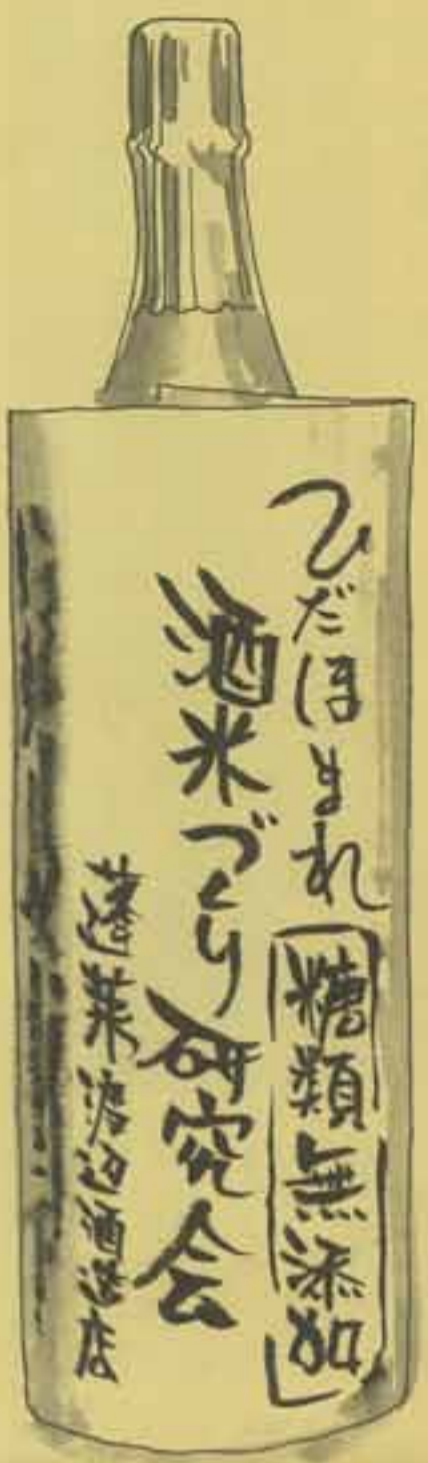 ひだほまれ「糖類無添加」
酒米づくり研究会
蓬莱渡辺酒造店